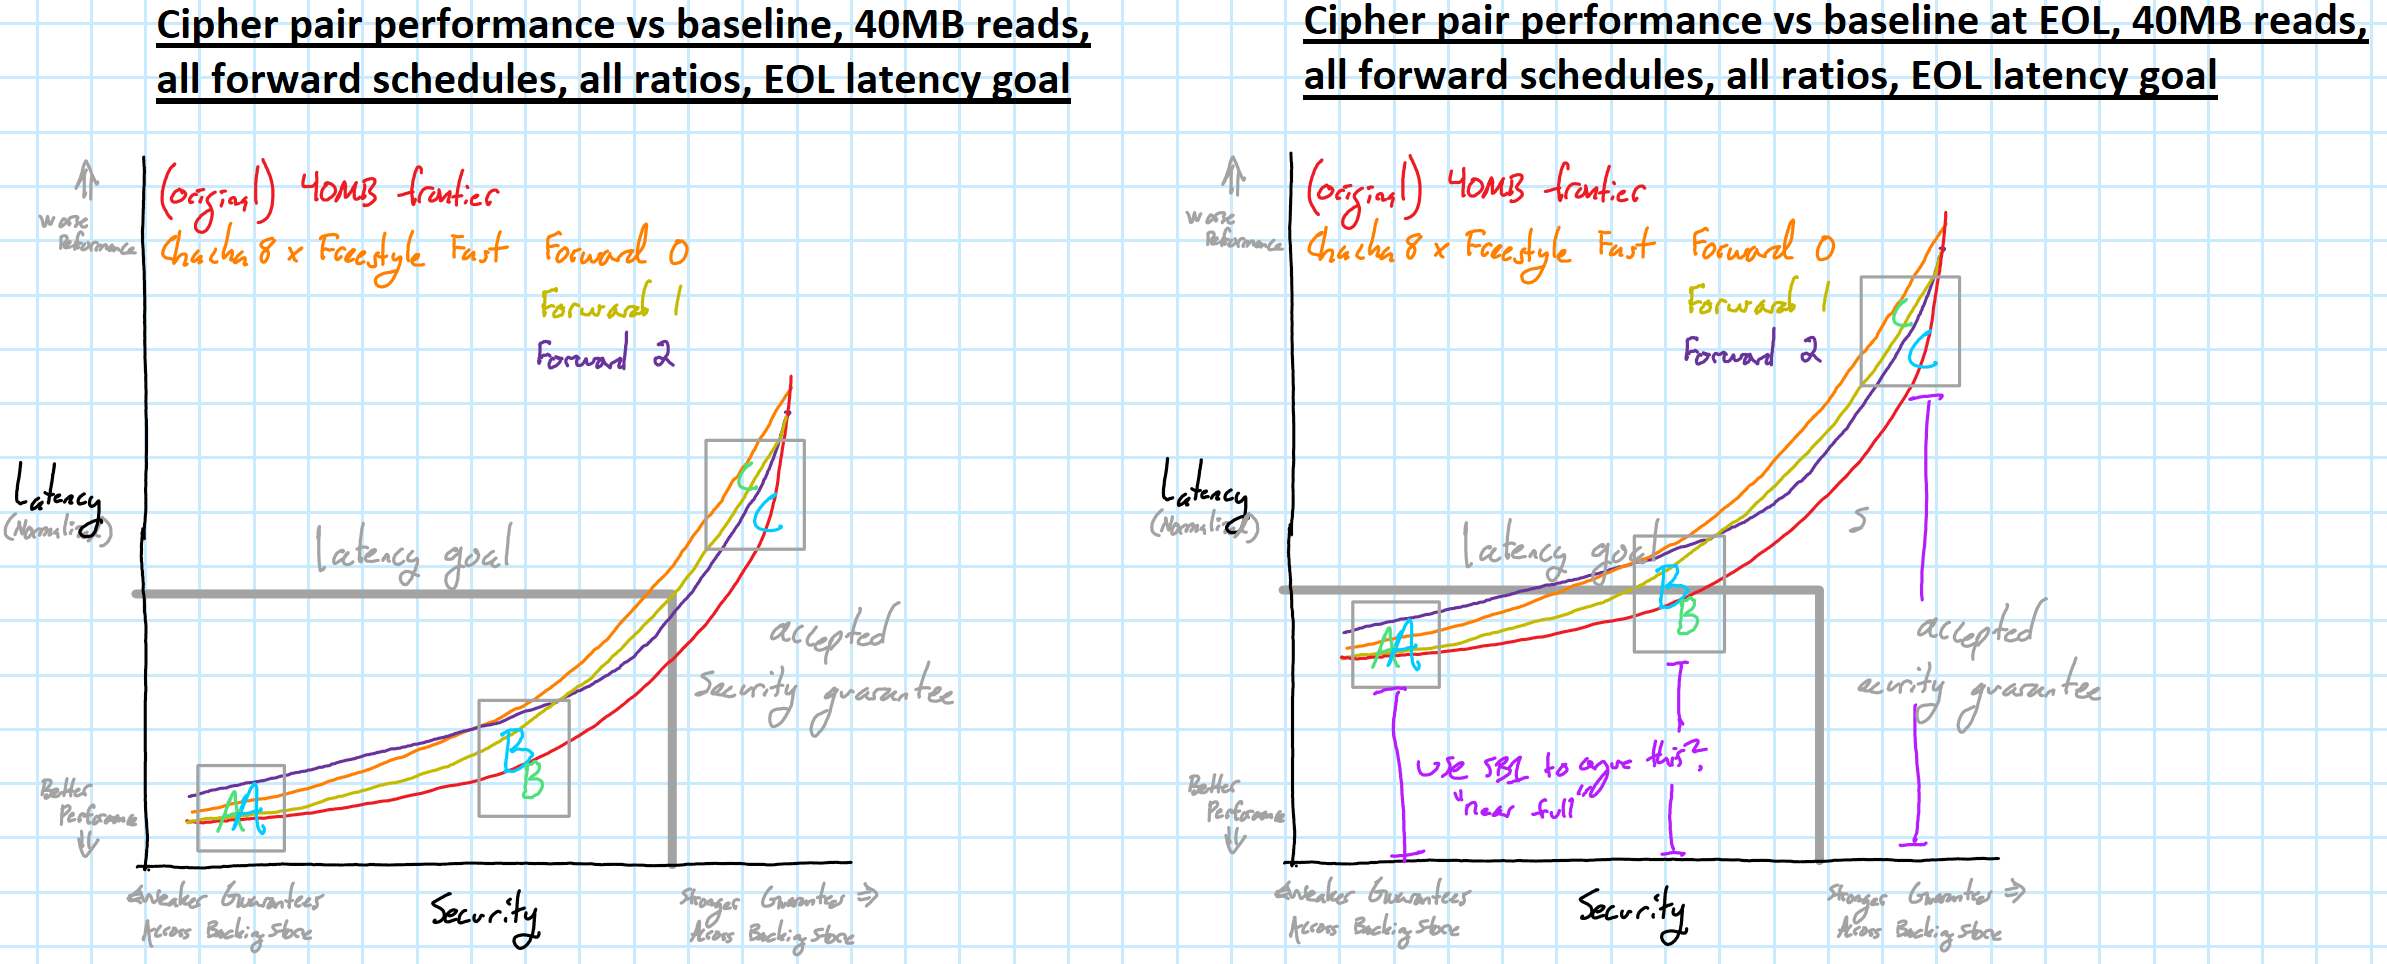 Cipher pair performance vs baseline, 40MB reads,
all forward schedules, all ratios, EOL latency goal
(original) 40MB frontier
Chacha 8 x Freestyle Fast Forward 0
Forward 1
Forward 2
Worse
Performance
Latency
(Normalized)
latency goal
accepted
Security guarantee
C
C
B
B
A A
Better
Performance
Weaker Guarantees
Across Backing Store
Security
Stronger Guarantees
Across Backing Store
Cipher pair performance vs baseline at EOL, 40MB reads,
all forward schedules, all ratios, EOL latency goal
(original) 40MB frontier
Chacha 8 x Freestyle Fast Forward 0
Forward 1
Forward 2
Worse
Performance
Latency
(Normalized)
latency goal
C
C
s
B
B
A A
accepted
ecurity guarantee
use SBI to argue this?
"near full"
Better
Performance
Weaker Guarantees
Across Backing Store
Security
Stronger Guarantees
Across Backing Store